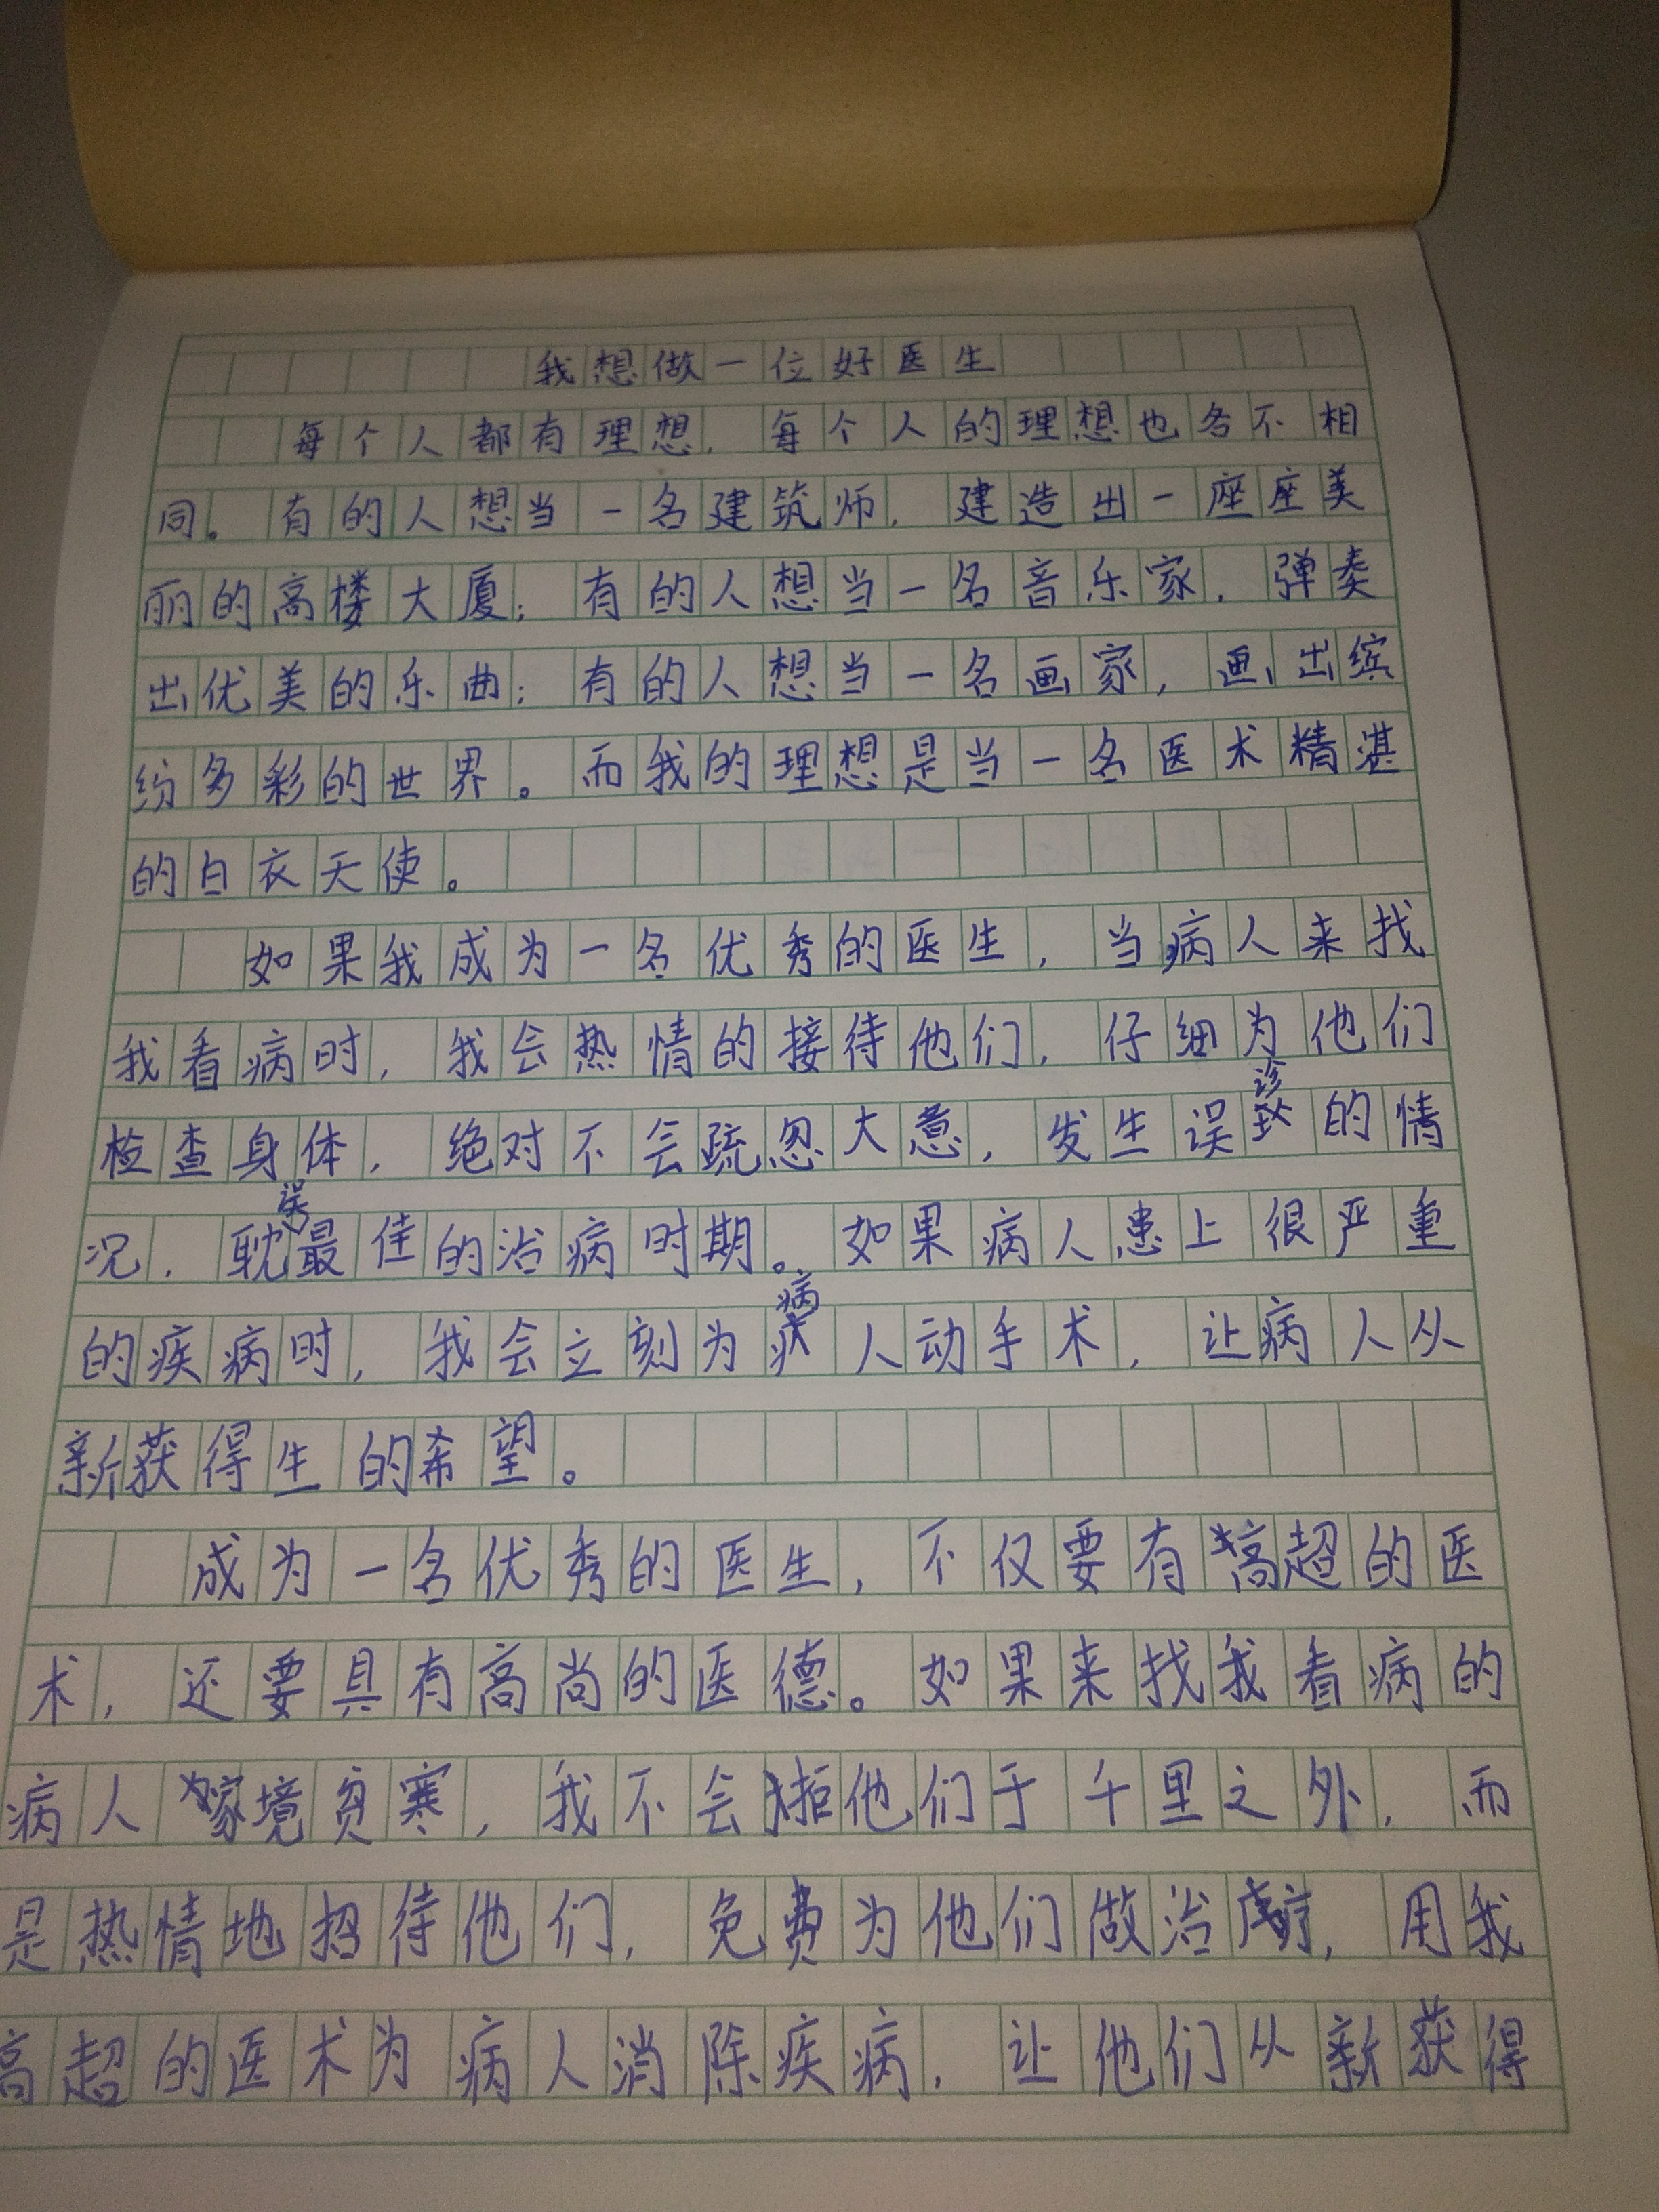 我想做一位好医生
每个人都有理想，每个人的理想也各不相
同。有的人想当一名建筑师，建造出一座座美
丽的高楼大厦；有的人想当一名音乐家，弹奏
出优美的乐曲；有的人想当一名画家，画出缤
纷多彩的世界。而我的理想是当一名医术精湛
的白衣天使。
如果我成为一名优秀的医生，当病人来找
我看病时，我会热情的接待他们，仔细为他们
检查身体，绝对不会疏忽大意，发生误诊的情
况，耽误最佳的治病时期。如果病人患上很严重
的疾病时，我会立刻为病人动手术，让病人从
新获得生的希望。
成为一名优秀的医生，不仅要有高超的医
术，还要具有高尚的医德。如果来找我看病的
病人家境贫寒，我不会拒他们于千里之外，而
是热情地招待他们，免费为他们做治疗，用我
高超的医术为病人消除疾病，让他们从新获得